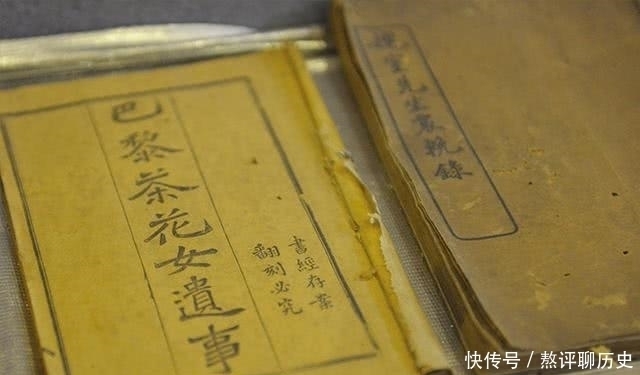 巴黎茶花女遺事
書經存案
翻刻必究
室先生哀輓錄
快传号/熬评聊历史